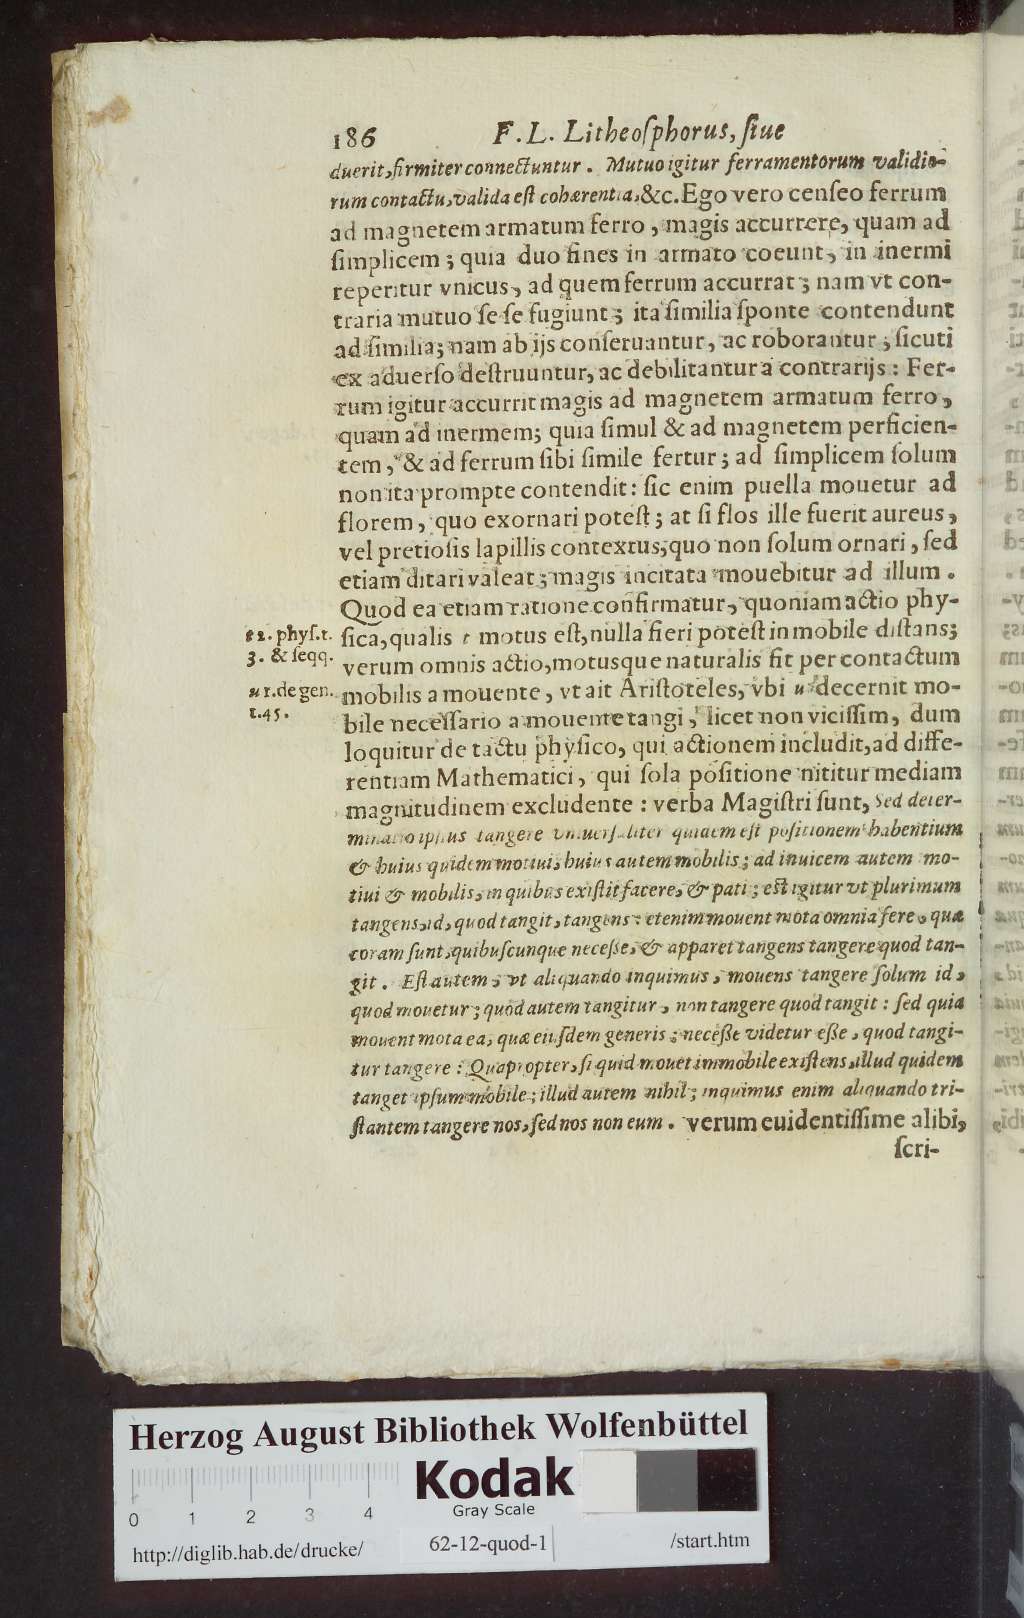 186 F. L. Litheoſphorus, ſiue
duerit, firmiter connectuntur. Mutuo igitur ferramentorum validio-
rum contactu, valida eſt cohærentia, &c. Ego vero cenſeo ferrum
ad magnetem armatum ferro, magis accurrere, quam ad
ſimplicem; quia duo fines in armato coeunt, in inermi
reperitur vnicus, ad quem ferrum accurrat; nam vt con-
traria mutuo ſe ſe fugiunt; ita ſimilia ſponte contendunt
ad ſimilia; nam ab ijs conſeruantur, ac roborantur; ſicuti
ex aduerſo deſtruuntur, ac debilitantur a contrarijs: Fer-
rum igitur accurrit magis ad magnetem armatum ferro,
quam ad inermem; quia ſimul & ad magnetem perficien-
tem, & ad ferrum ſibi ſimile fertur; ad ſimplicem ſolum
non ita prompte contendit: ſic enim puella mouetur ad
florem, quo exornari poteſt; at ſi flos ille fuerit aureus,
vel pretioſis lapillis contextus, quo non ſolum ornari, ſed
etiam ditari valeat; magis incitata mouebitur ad illum.
Quod ea etiam ratione confirmatur, quoniam actio phy-
ſica, qualis t motus eſt, nulla fieri poteſt in mobile diſtans;
verum omnis actio, motusque naturalis fit per contactum
mobilis a mouente, vt ait Ariſtoteles, vbi u decernit mo-
bile neceſſario a mouente tangi, licet non viciſſim, dum
loquitur de tactu phyſico, qui actionem includit, ad diffe-
rentiam Mathematici, qui ſola poſitione nititur mediam
magnitudinem excludente: verba Magiſtri ſunt, Sed deter-
minatio ipſius tangere vniuerſaliter quidem eſt poſitionem habentium
& huius quidem motiui, huius autem mobilis; ad inuicem autem mo-
tiui & mobilis, in quibus exiſtit facere, & pati; eſt igitur vt plurimum
tangens, id, quod tangit, tangens: etenim mouent mota omnia fere, quæ
coram ſunt, quibuſcunque neceſſe, & apparet tangens tangere quod tan-
git. Eſt autem, vt aliquando inquimus, mouens tangere ſolum id,
quod mouetur; quod autem tangitur, non tangere quod tangit: ſed quia
mouent mota ea, quæ eiuſdem generis; neceſſe videtur eſſe, quod tangi-
tur tangere: Quapropter, ſi quid mouet immobile exiſtens, illud quidem
tanget ipſum mobile; illud autem nihil; inquimus enim aliquando tri-
ſtantem tangere nos, ſed nos non eum. verum euidentiſſime alibi,
ſcri-
t 2. phyſ. t.
3. & ſeqq.
u 1. de gen.
t. 45.
Herzog August Bibliothek Wolfenbüttel
Kodak
Gray Scale
0 1 2 3 4
http://diglib.hab.de/drucke/ 62-12-quod-1 /start.htm